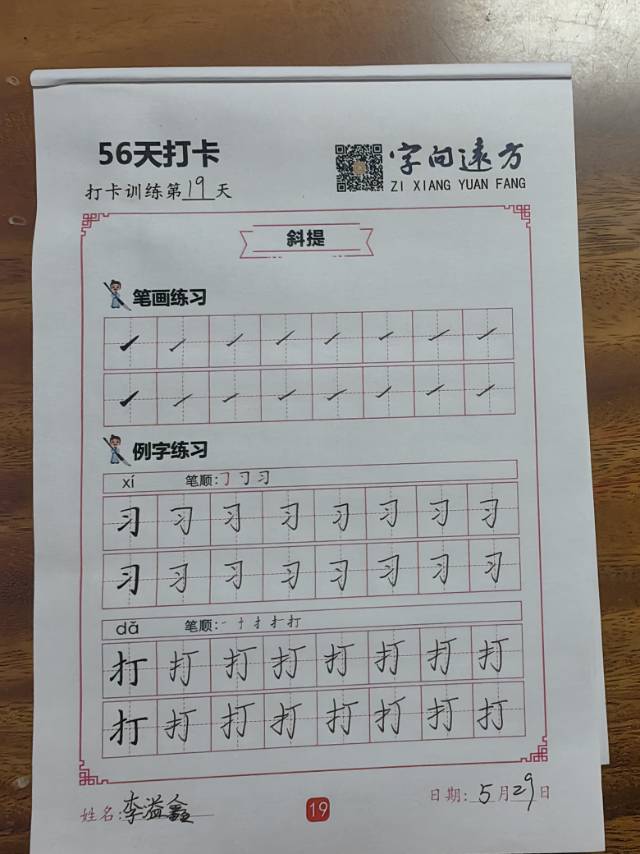 56天打卡
字向远方
ZI XIANG YUAN FANG
打卡训练第19天
斜提
笔画练习
例字练习
xí 笔顺:
习 习 习 习 习 习 习 习
习 习 习 习 习 习 习 习
dǎ 笔顺:
打 打 打 打 打 打 打 打
打 打 打 打 打 打 打 打
姓名:李溢鑫
19
日期:5月29日